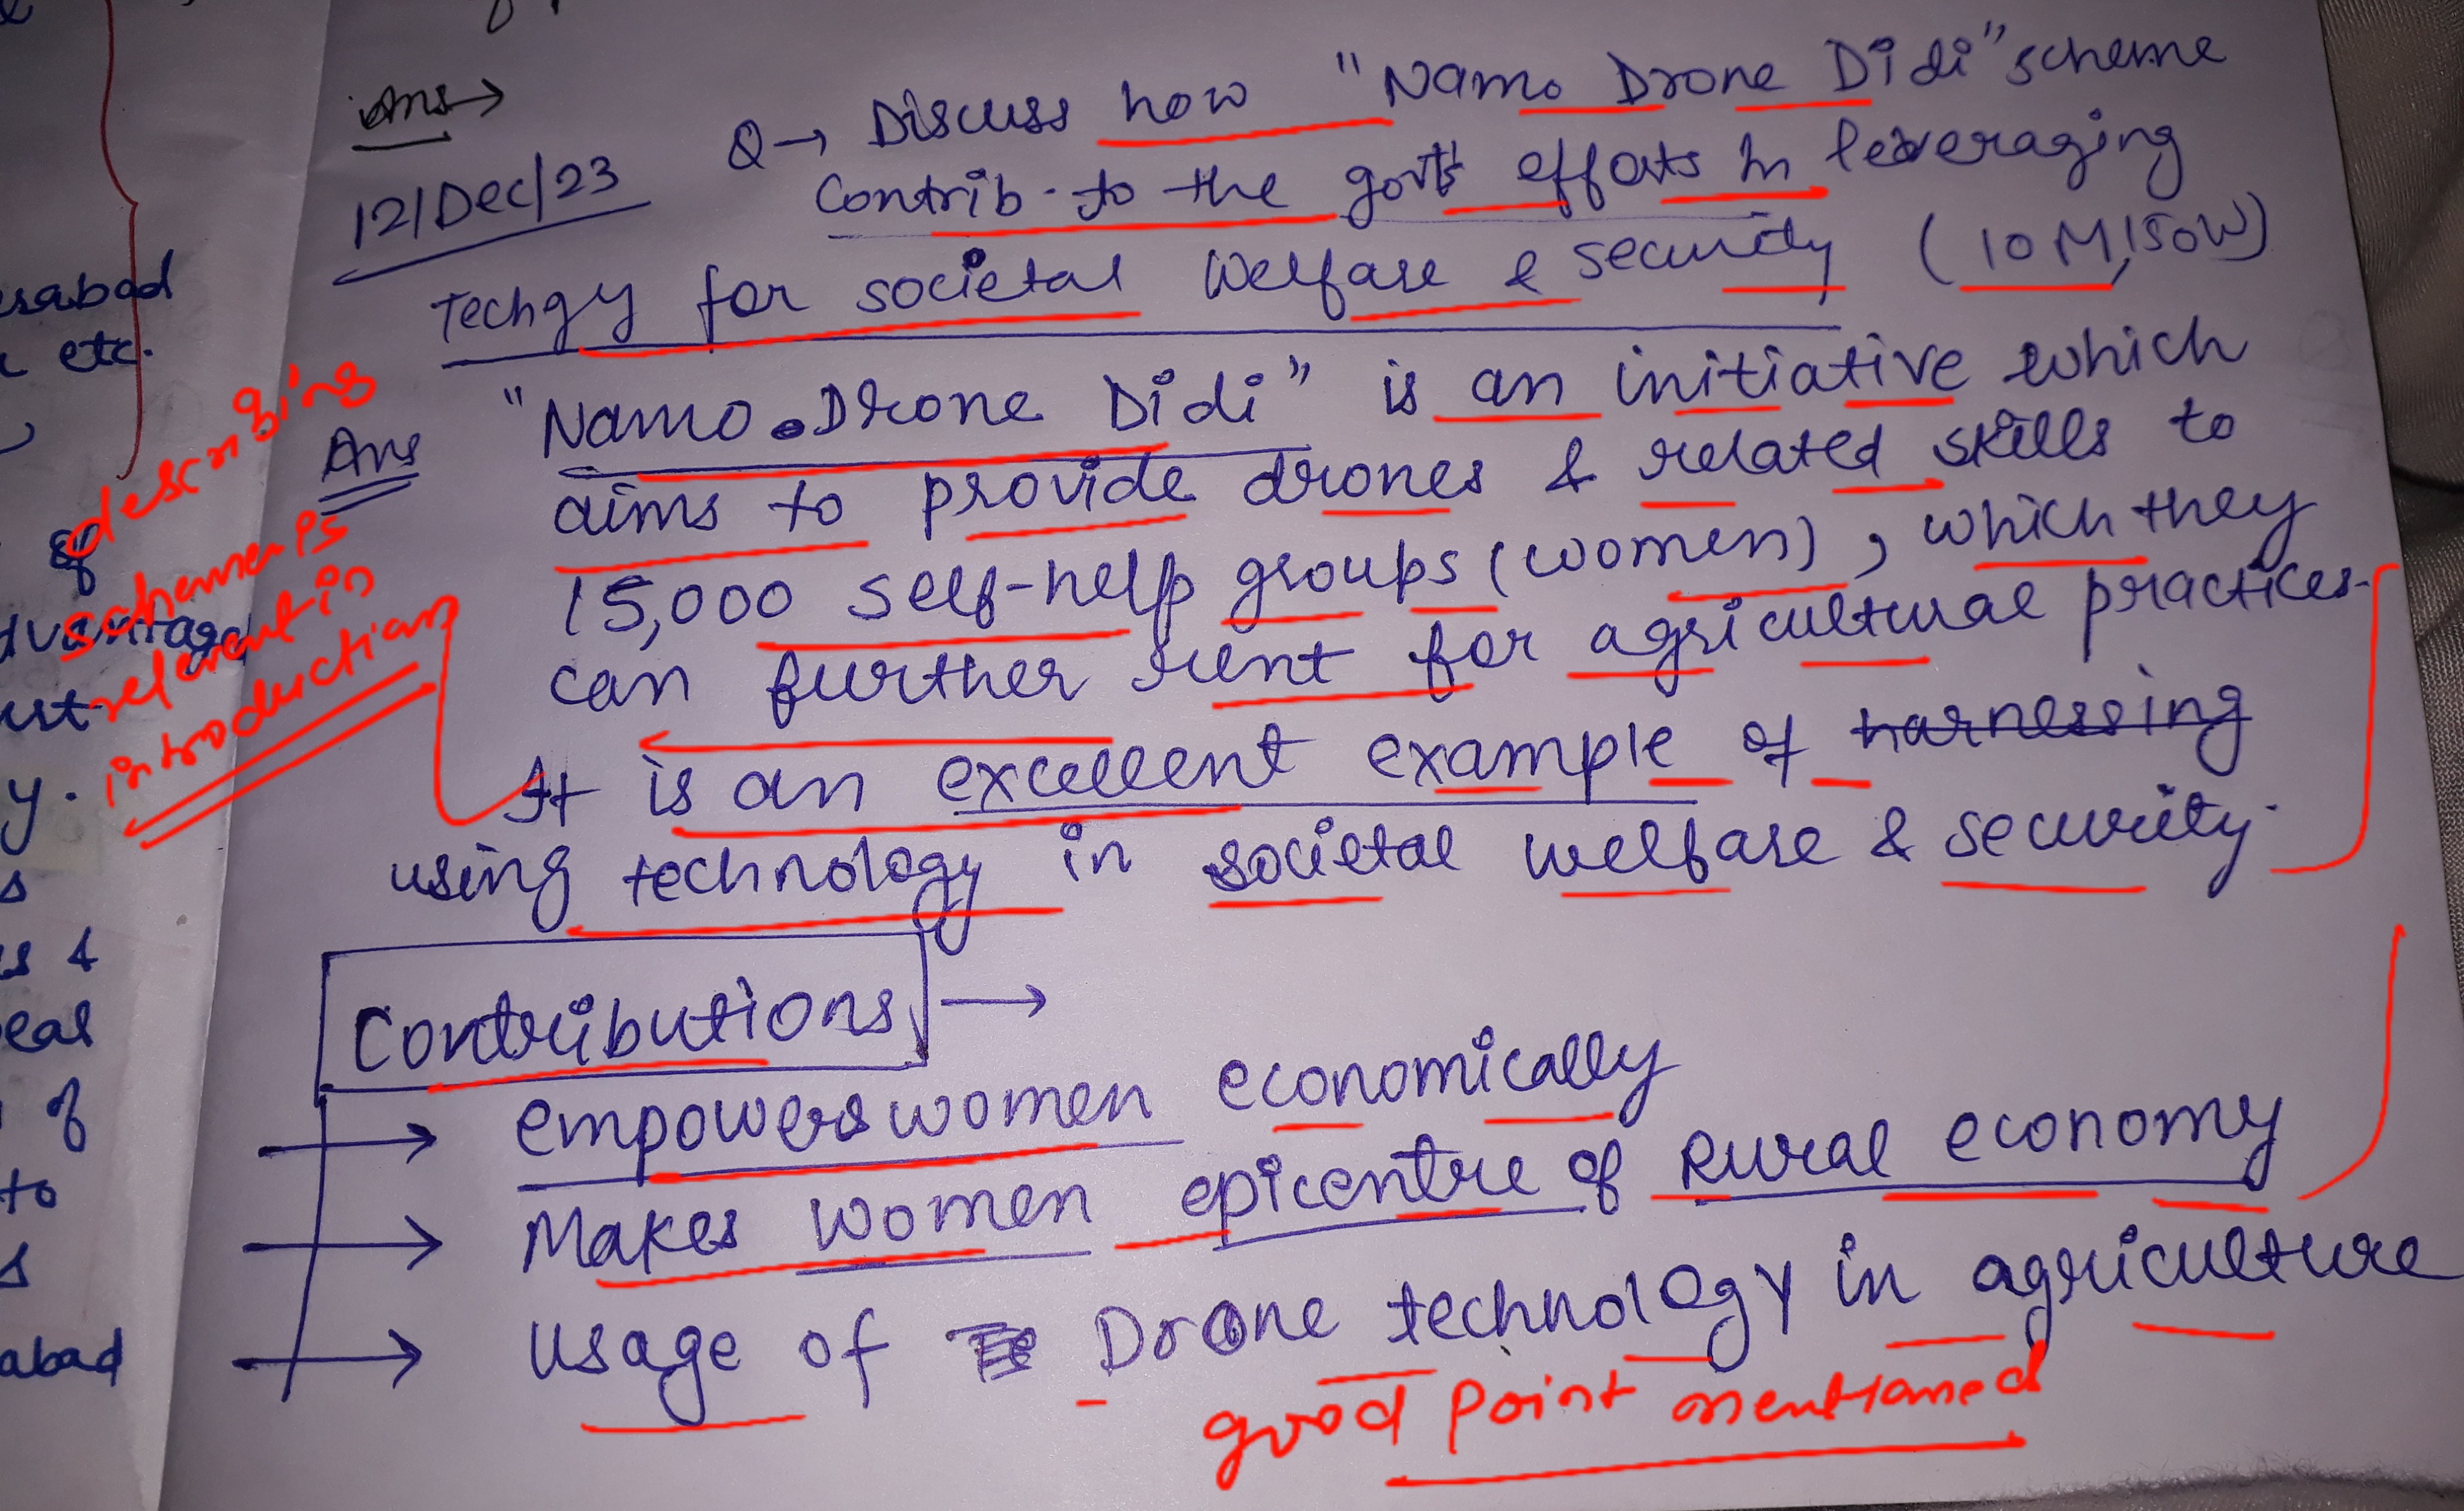 Ans→
12/Dec/23
Q→ Discuss how "Namo Drone Didi" scheme
Contrib. to the govt's efforts in leveraging
Techgy for societal welfare & security (10M,150W)
Ans
"Namo Drone Didi" is an initiative which
aims to provide drones & related skills to
15,000 self-help groups (women), which they
can further rent for agricultural practices.
It is an excellent example of harnessing
using technology in societal welfare & security.
describing
scheme is
relevant in
introduction
Contributions →
→ empowers women economically
→ Makes women epicentre of Rural economy
→ Usage of Drone technology in agriculture
good point mentioned
etc.
of
y.
s
s &
of
to
s
abad